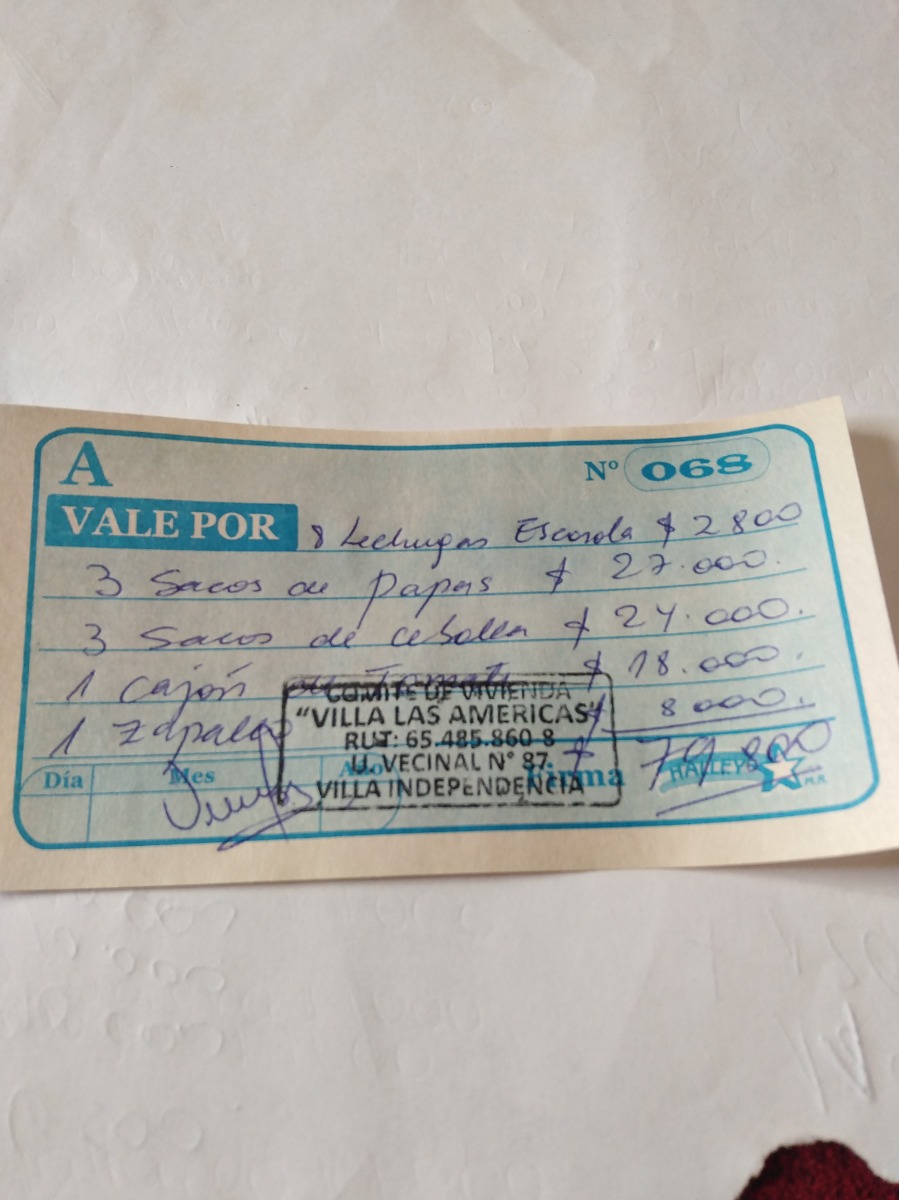 A
Nº 068
VALE POR 8 Lechugas Escarola $ 2800
3 Sacos de papas $ 27.000.
3 Sacos de cebolla $ 24.000.
1 Cajón de Tomate $ 18.000.
1 Zapallo $ 8000.
COMITE DE VIVIENDA
"VILLA LAS AMERICAS"
RUT: 65.485.860-8
U. VECINAL N° 87
VILLA INDEPENDENCIA
$ 79.800
Día Mes Año Firma
HALLEY
M.R.